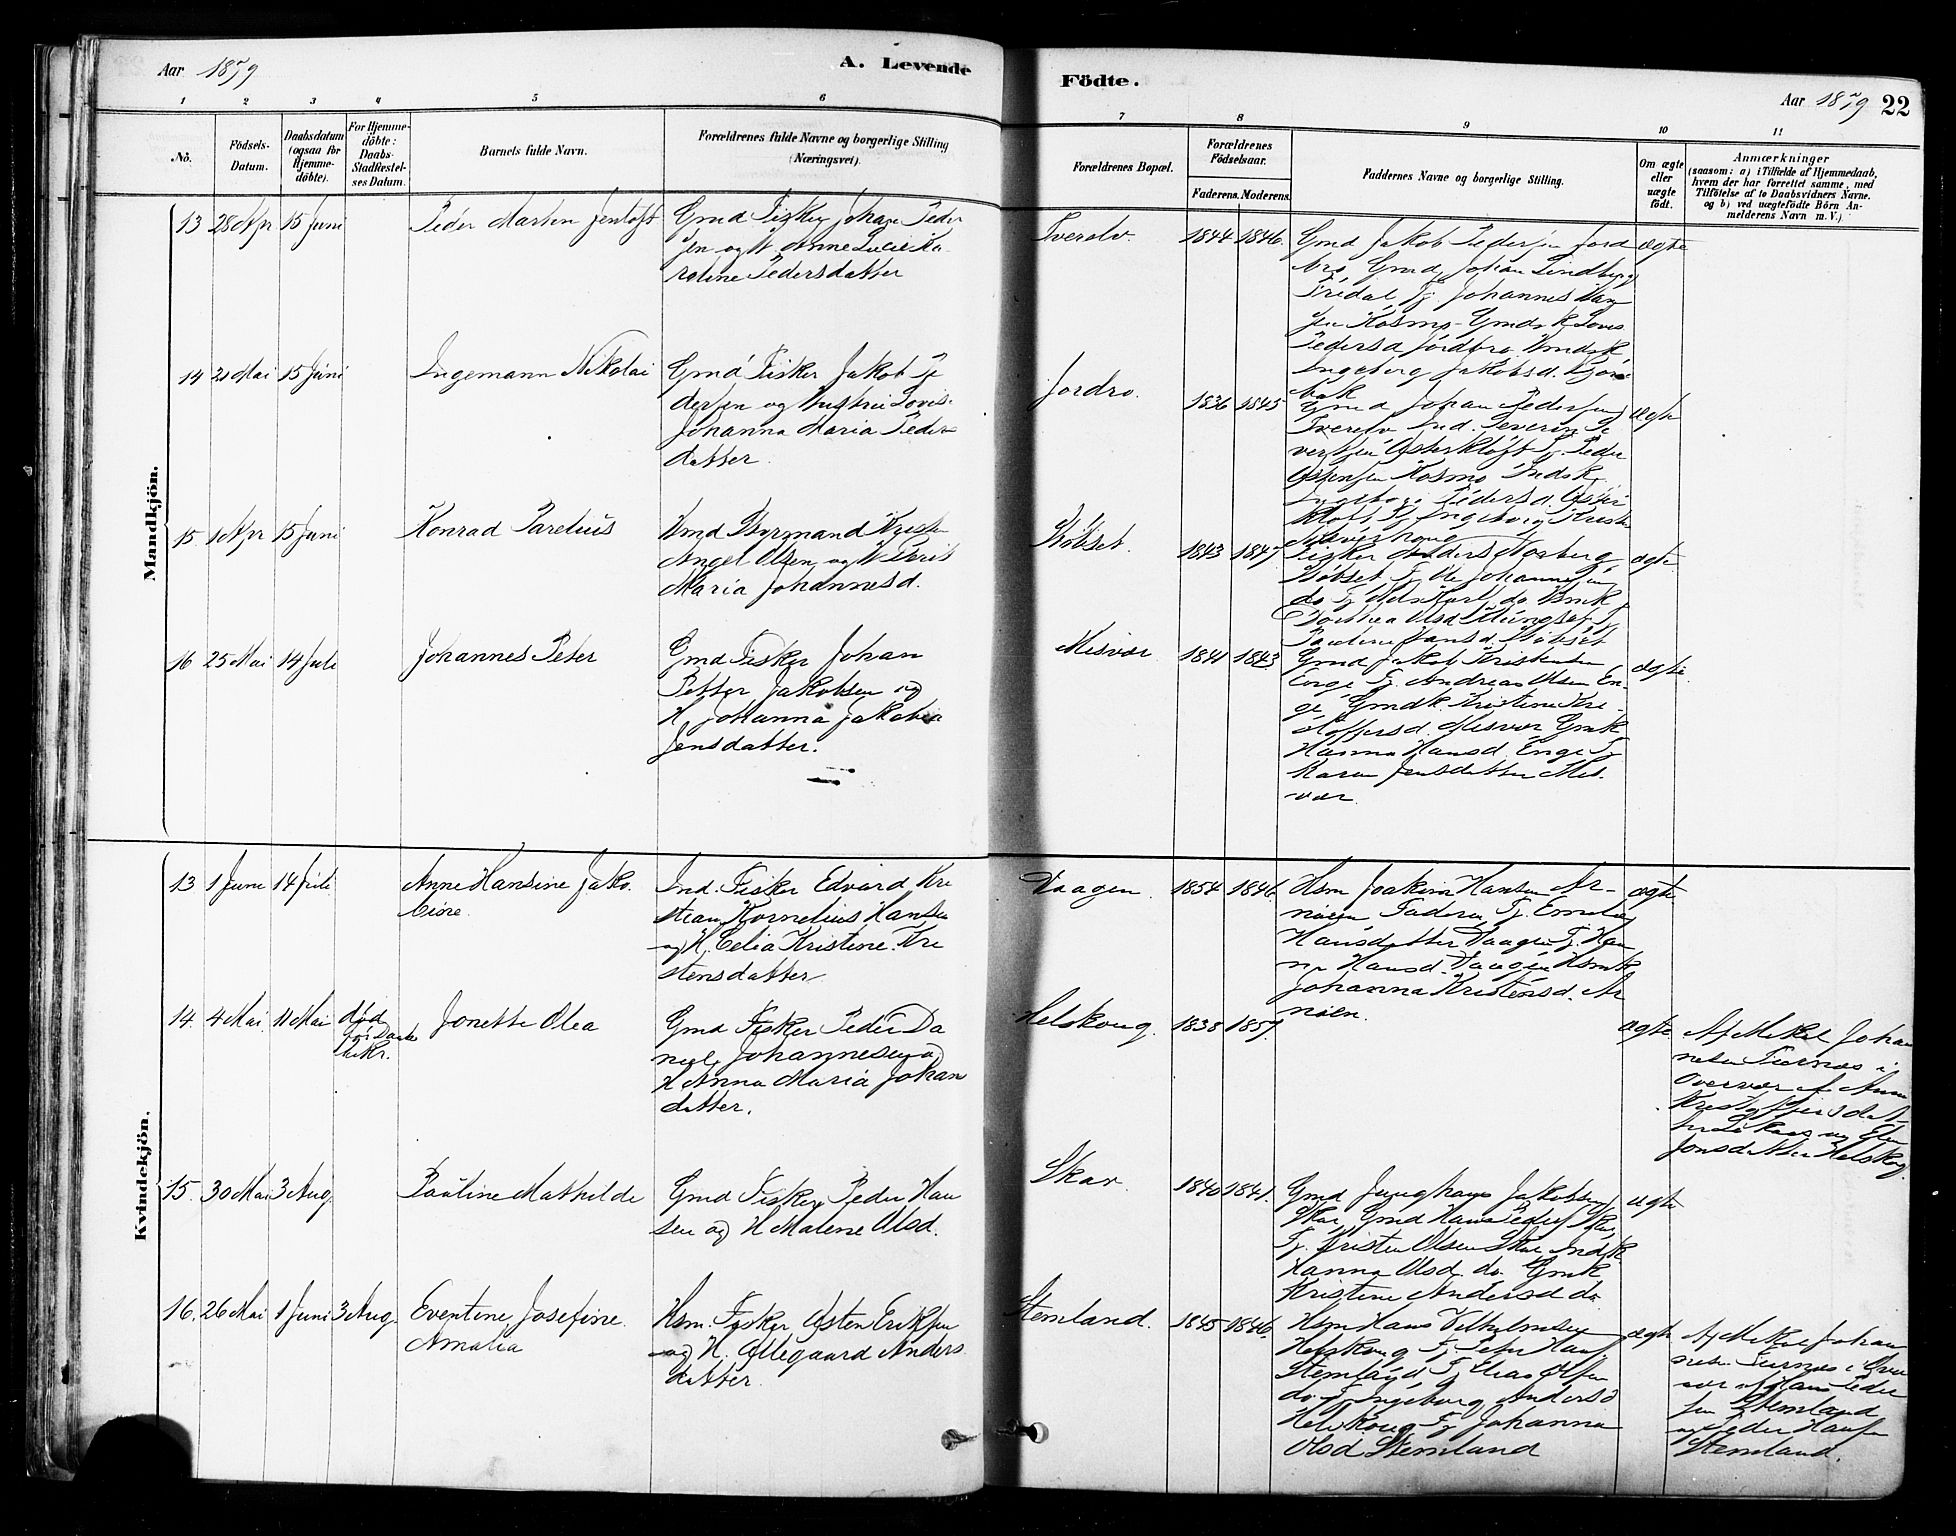 Aar 1879
A. Levende
Födte.
Aar 1879
22
1 2 3 4 5 6 7 8 9 10 11
No.
Födsels-
Datum.
Daabsdatum
(ogsaa for
Hjemme-
döbte).
For Hjemme-
döbte:
Daabs-
Stadfæstel-
ses Datum.
Barnets fulde Navn.
Forældrenes fulde Navne og borgerlige Stilling
(Næringsvei).
Forældrenes Bopæl.
Forældrenes
Födselsaar.
Faderens. Moderens.
Faddernes Navne og borgerlige Stilling.
Om ægte
eller
uægte
födt.
Anmærkninger
(saasom: a) i Tilfælde af Hjemmedaab,
hvem der har forrettet samme, med
Tilföielse af to Daabsvidners Navne.
og b) ved uægtefödte Börn An-
melderens Navn m. V.).
Mandkjön.
13 28 Apr 15 Juni
Peder Marten Jentoft
Gmd Fisker Johan Peder
sen og H Anne Lucie Ka
roline Pedersdatter
Tverelv.
1844 1846
Gmd Jakob Pedersen Jord
bro, Gmd Johan Lindberg
Fridal Fj. Johannes
Kosmo Gmdsk Lovis
Pedersd Jordbro
Ingeborg Jakobsd.
ægte
14 21 Mai 15 Juni
Ingemann Nikolai
Gmd Fisker Jakob Pe
dersen og Hustru Lovise
Johanna Maria Peders
datter.
Jordro.
1836 1845
Gmd Johan Pedersen
Tverelv Ind. Severin
Østerkløft Fj. Peder
Kosmo Indsk
Ingeborg Pedersd.
Fj Ingeborg
ægte
15 1 Apr 15 Juni
Konrad Parelius
Angel Olsen og H Berit
Maria Johannesd.
1843 1847
Fisker Anders
Fj. Ole Johannesen
do Fj
Olsd
Hansd
ægte
16 25 Mai 14 Juli
Johannes Peter
Gmd Fisker Johan
Petter Jakobsen og
H. Johanna Jakobea
Jensdatter.
Misvær
1841 1843
Gmd Jakob Kristensen
Enge Fj. Andreas Olsen En-
ge, Gmdk. Kristine Kri-
stoffersd. Misvær Gmk
Hanna Hansd. Enge Fj
Karen Jensdatter Mis-
vær.
ægte.
Kvindekjön.
13 1 Juni 14 Juli
Anne Hansine Jako-
bine.
Ind. Fisker Edvard Kri
stian Kornelius Hansen
og H. Celia Kristine Kri
stensdatter
Vaagen.
1854 1846
Hsm Joakim Hansen Ar-
nøien Faderen Fj. Emelie
Hansdatter Vaagen Fj. Han
na Hansd. Vaagen Hsmk
Johanna Kristensd. Ar
nøien.
ægte
14. 4 Mai. 11 Mai
død
før Daabs
bekr.
Jonette Olea
Gmd Fisker Peder Da
niel Johannesen og
H Anna Maria Johan
datter.
Helskoug.
1838 1857.
ægte
Af Mikal Johan
nesen Furnæs i
Overvær af Anne
Kristoffersdat
og Elen
Jonsdatter Helskog.
15. 30 Mai 3 Aug.
Pauline Mathilde
Gmd Fisker Peder Han
sen og H Malene Olsd.
Skar.
1840 1841.
Gmd Junghans Jakobsen
Skar, Gmd Hans Peders Skar
Fj. Kristen Olsen Skar Indk
Hanna Olsd. do. Gmk
Kristine Andersd do.
ægte
16. 26 Mai 1 Juni 3 Aug.
Eventine Josefine
Amalia
Hsm. Fisker Østen Eriksen
og H. Ollegaard Anders
datter.
Stemland.
1845 1846.
Hsm Hans Vilhelmsen
Helskoug Fj. Peter Hans
Stemland Fj Elias Olsen
do Fj Ingeborg Andersd
Helskoug Fj Johanna
Olsd Stemland
ægte
Af Mikal Johan
nesen Furnæs i Over
vær af Hans Peder
sen Stemland
og Peder Hansen
Stemland.